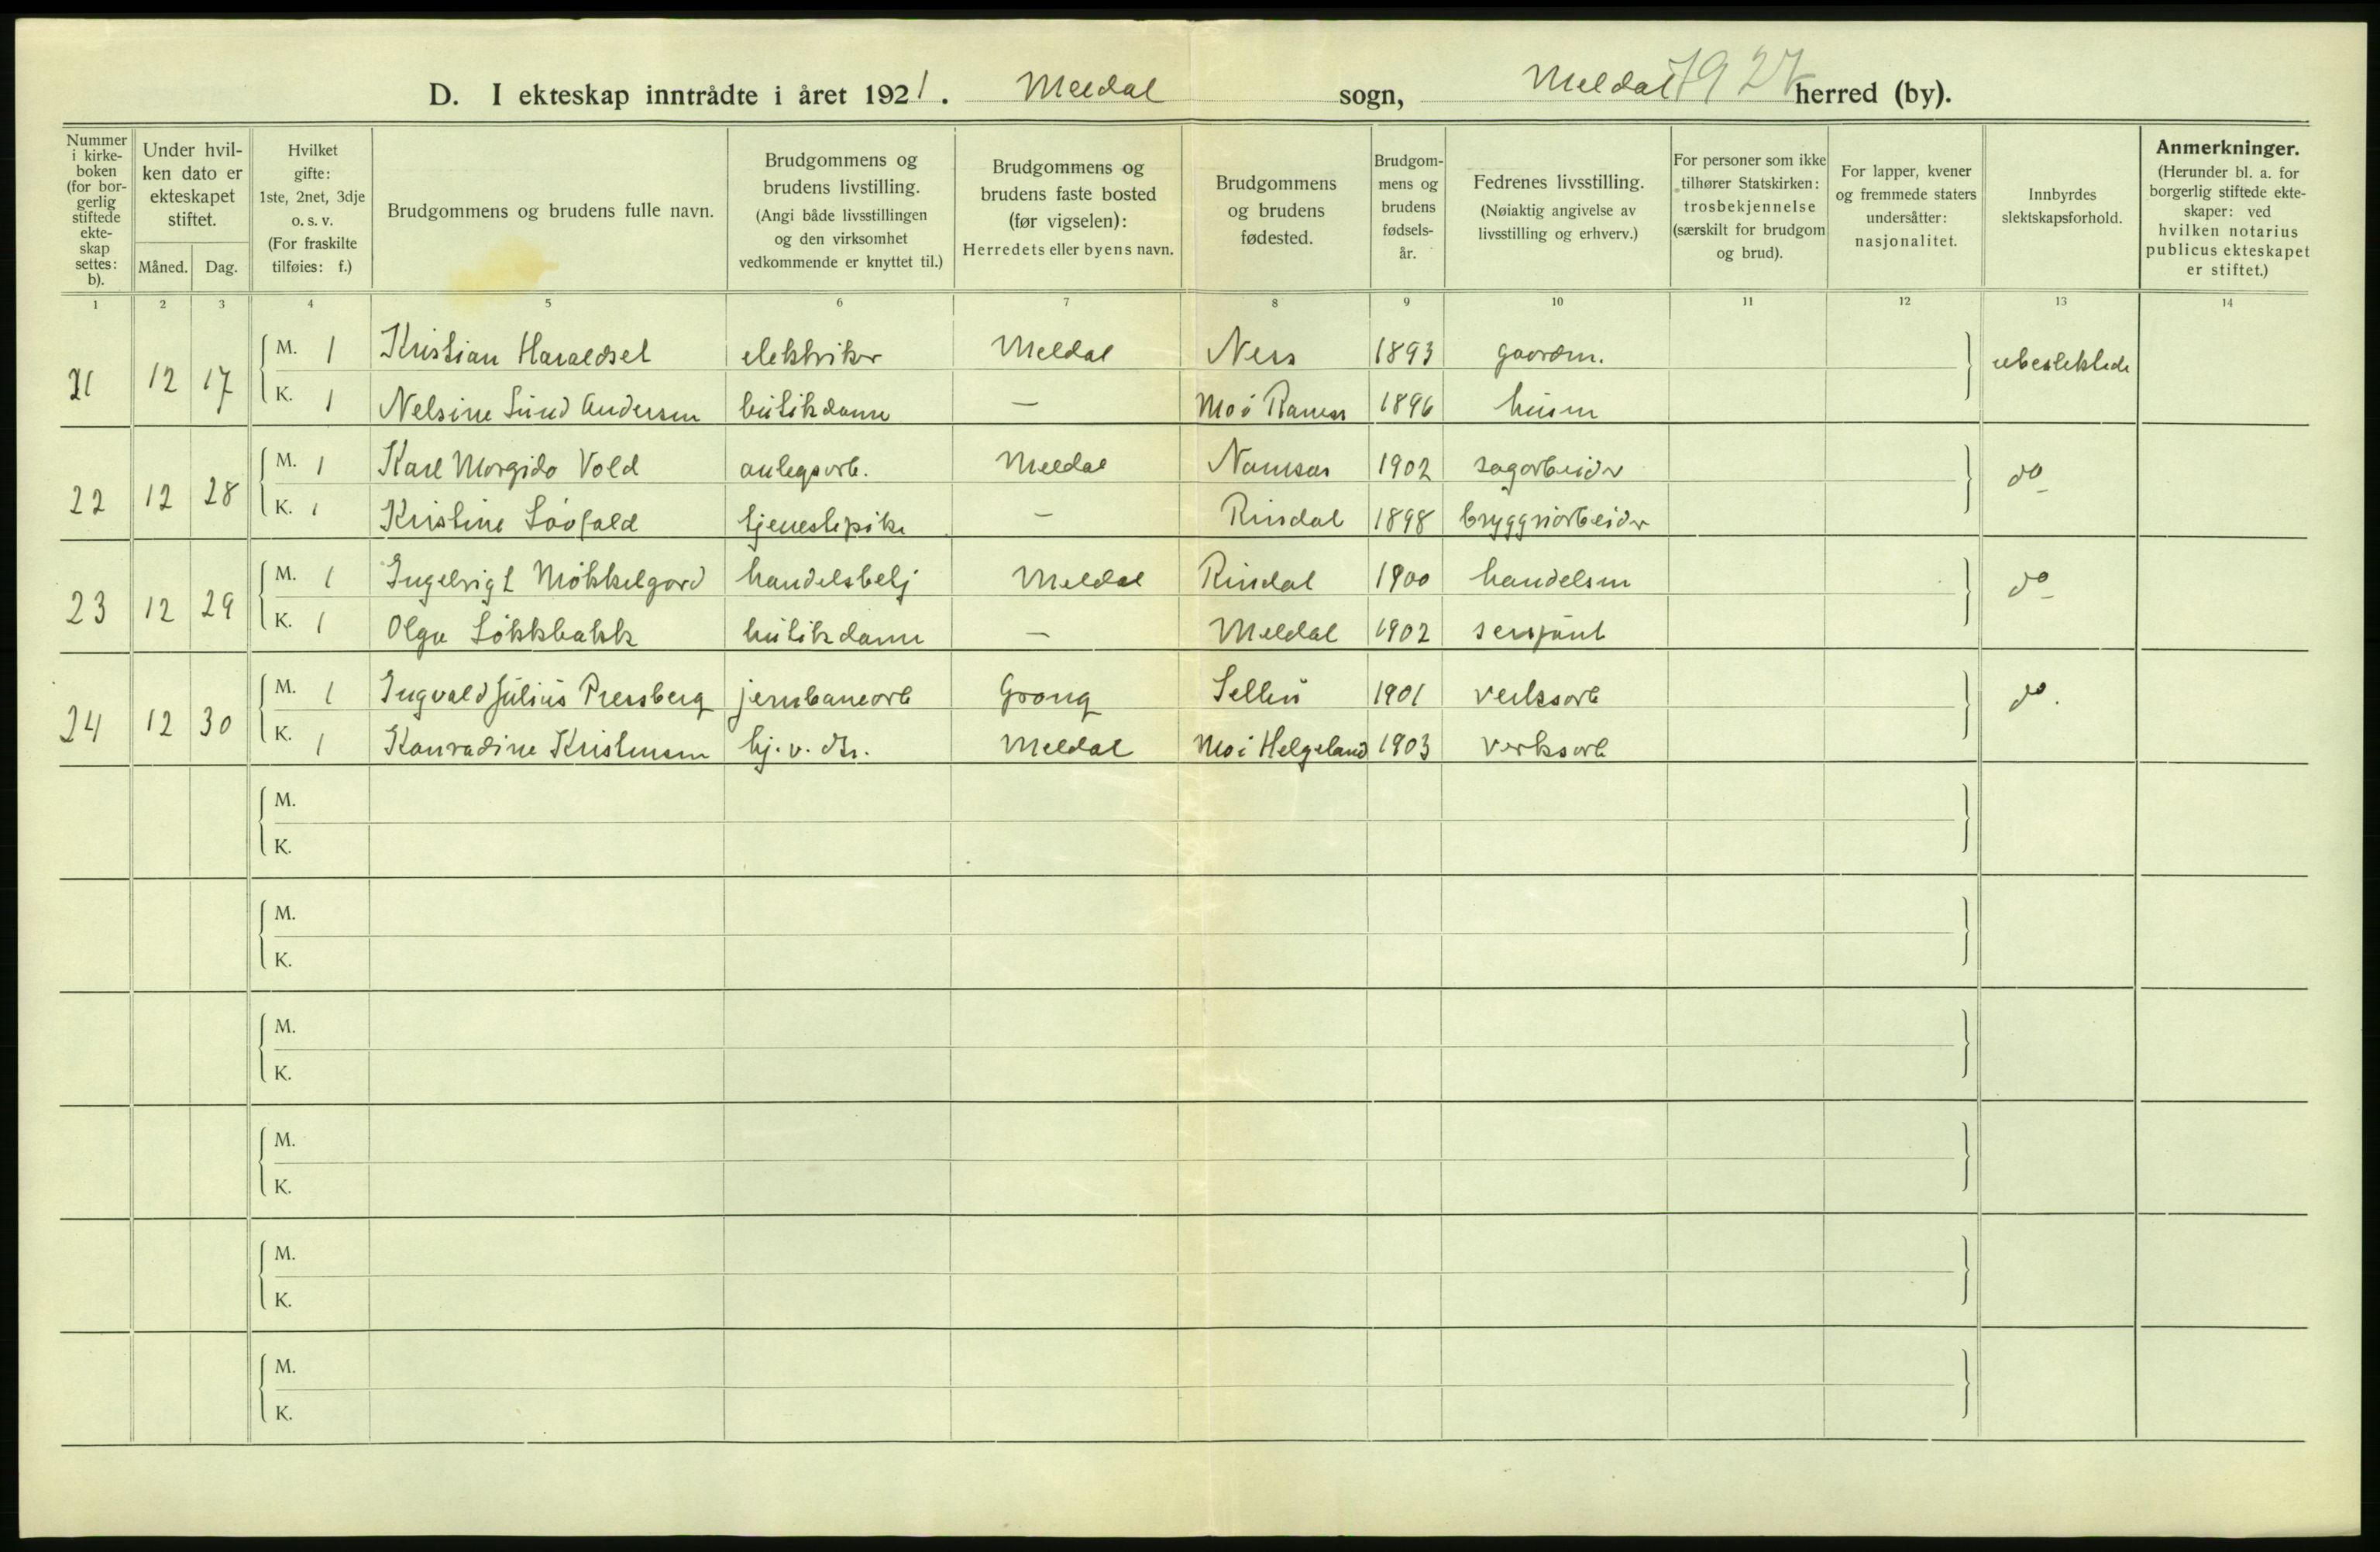 D. I ekteskap inntrådte i året 1921. Meldal sogn, Meldal 1927 herred (by).
Nummer i kirkeboken (for borgerlig stiftede ekteskap settes: b).
Under hvilken dato er ekteskapet stiftet.
Måned. Dag.
Hvilket gifte: 1ste, 2net, 3dje o. s. v. (For fraskilte tilføies: f.)
Brudgommens og brudens fulle navn.
Brudgommens og brudens livstilling. (Angi både livsstillingen og den virksomhet vedkommende er knyttet til.)
Brudgommens og brudens faste bosted (før vigselen): Herredets eller byens navn.
Brudgommens og brudens fødested.
Brudgommens og brudens fødselsår.
Fedrenes livsstilling. (Nøiaktig angivelse av livsstilling og erhverv.)
For personer som ikke tilhører Statskirken: trosbekjennelse (særskilt for brudgom og brud).
For lapper, kvener og fremmede staters undersåtter: nasjonalitet.
Innbyrdes slektskapsforhold.
Anmerkninger. (Herunder bl. a. for borgerlig stiftede ekteskaper: ved hvilken notarius publicus ekteskapet er stiftet.)
1 2 3 4 5 6 7 8 9 10 11 12 13 14
21 12 17 M. 1 Kristian Haraldsel elektriker Meldal Ness 1893 gaardm. ubeslektede
K. 1 Nelsine Lund Andersen butikdame — Mo i Ranen 1896 husm
22 12 28 M. 1 Karl Morgido Vold anlegsarb. Meldal Namsos 1902 sagarbeider do
K. 1 Kristine Løvfald tjenestepike — Rindal 1898 bryggriarbeider
23 12 29 M. 1 Ingebrigt Møkkelgard handelsbetj Meldal Rindal 1900 handelsm do
K. 1 Olga Løkkbakk butikdame — Meldal 1902 sersjant
24 12 30 M. 1 Ingvald Julius Pressberg jernbanearb Grong 1901 verksarb do.
K. 1 Konradine Kristensen hj. v. dtr. Meldal Mo i Helgeland 1903 verksarb
M.
K.
M.
K.
M.
K.
M.
K.
M.
K.
M.
K.